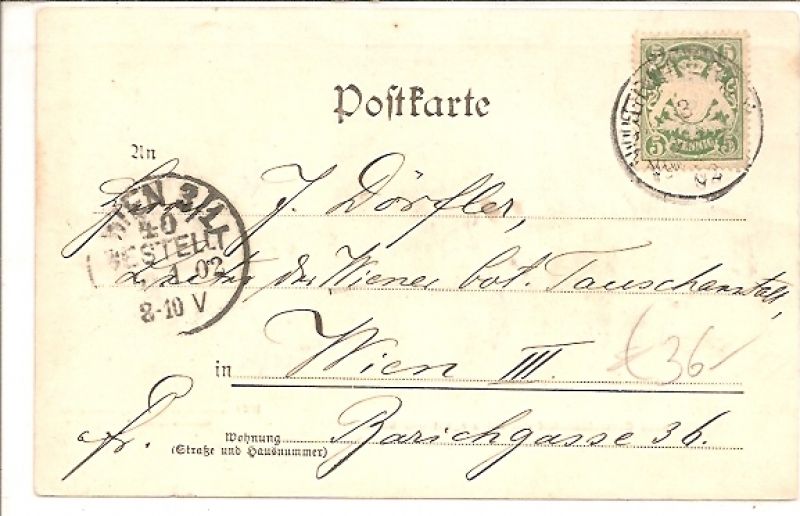 Postkarte
5 5
5 PFENNIG 5
An
WIEN 3/1
40
BESTELLT
1. 02
8-10 V
J. Dörfler,
der Wiener bot. Tauschanstalt,
in Wien III.
€ 36-
fr. Wohnung Barichgasse 36.
(Straße und Hausnummer)